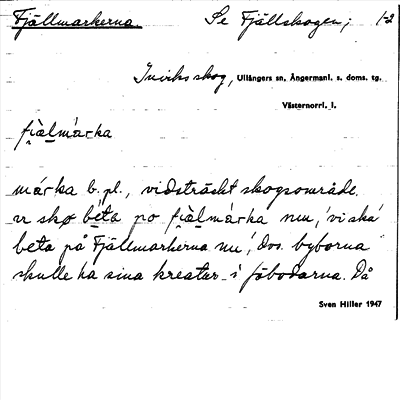 Fjällmarkerna. Se Fjällskogen; 1-2
Inviksskog, Ullångers sn, Ångermanl. s. doms. tg.
Västernorrl. l.
fjàlmárka
márka b. pl., vidsträckt skogsområde.
vr skø béta po fjàlmárka nu, 'vi ska
beta på Fjällmarkerna nu', dvs. byborna
skulle ha sina kreatur i fäbodarna. Då
Sven Hiller 1947